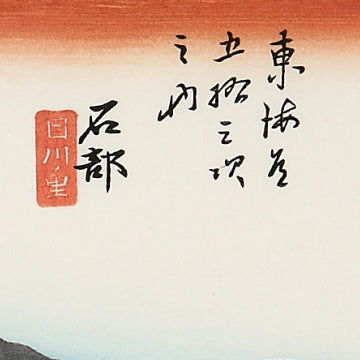 東海道
五拾三次
之内
石部
目川ノ里